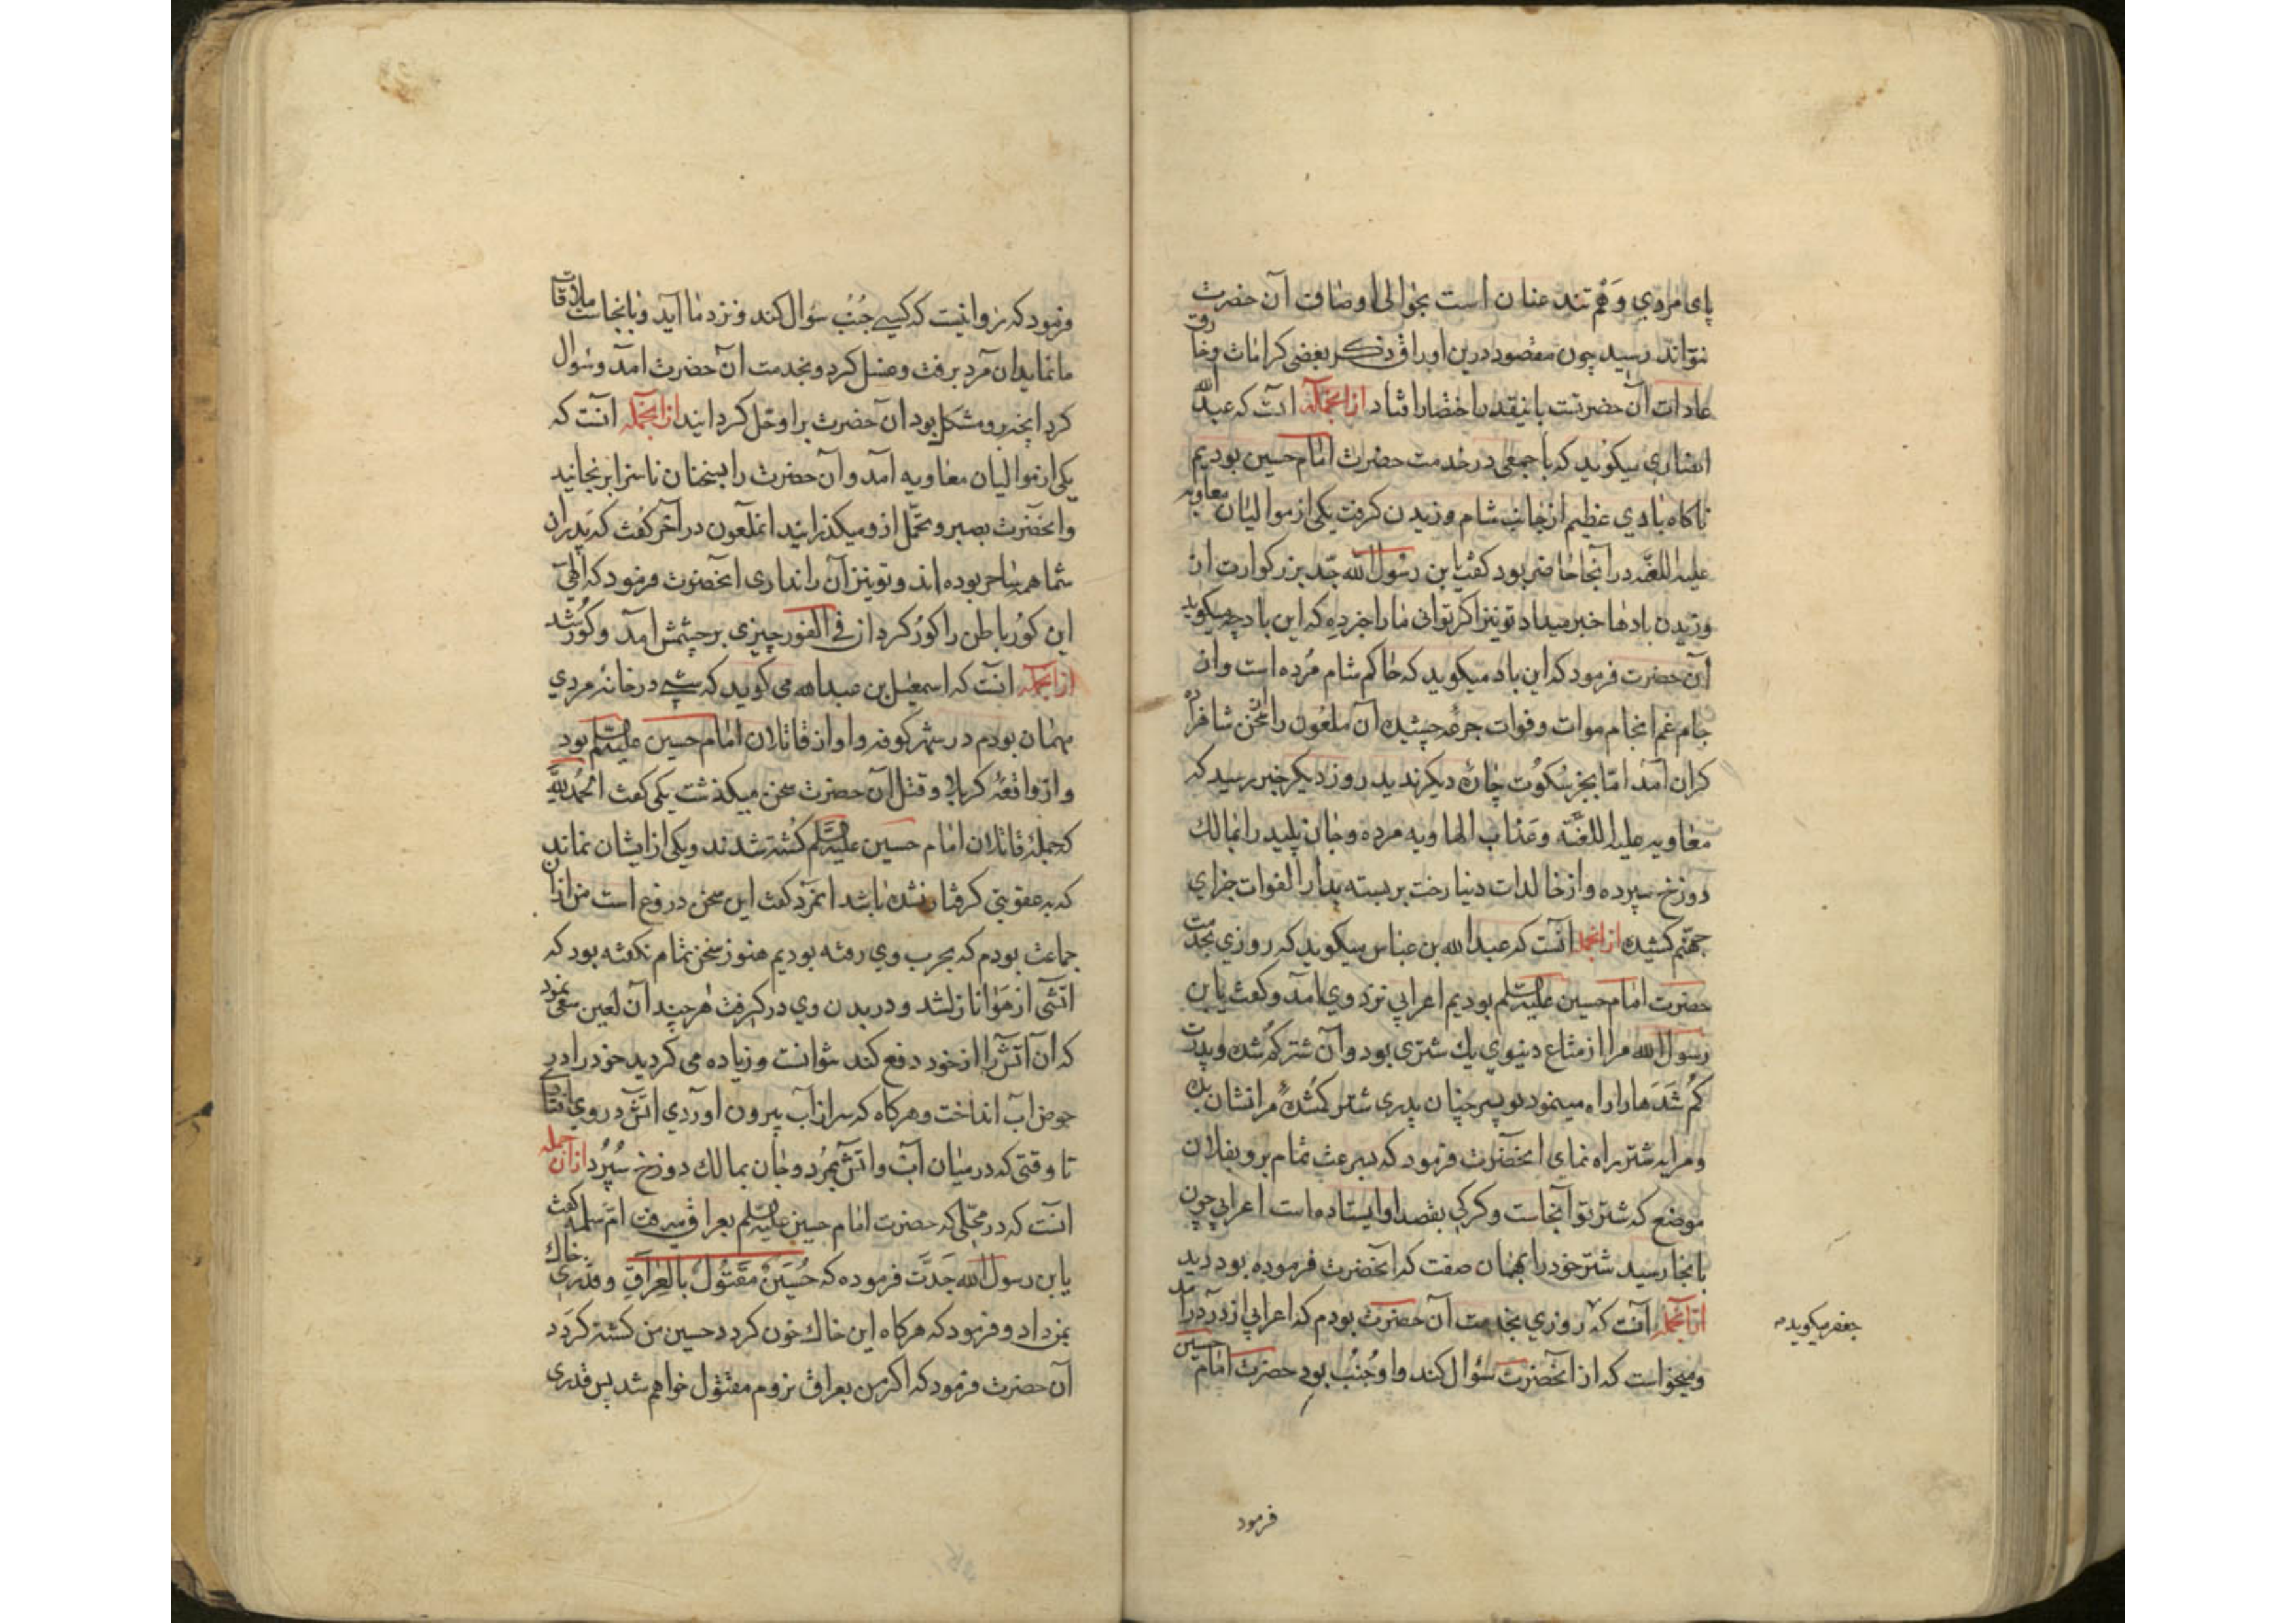 پای مردی و هم تند عنان است بحوالی اوصاف آن حضرت
نتواند رسید چون مقصود درین اوراق ذکر بعضی کرامات و خارق
عادات آن حضرتست باینقدر اختصار افتاد ازانجمله آنست که عبدالله
انصاری میکوید که با جمعی در خدمت حضرت امام حسین بودیم
ناکاه بادی عظیم از جانب شام وزیدن کرفت یکی از موالیان معاویه
علیه اللعنه در آنجا حاضر بود کفت یابن رسول الله جد بزرکوارت از
وزیدن بادها خبر میداد تو نیز اکر توانی ما را خبر ده که این باد چه میکوید
آن حضرت فرمود که این باد میکوید که حاکم شام مرده است و از
جام غم انجام موات و فوات جرعه چشیده آن ملعون را این سخن
کران آمد اما بجز سکوت چاره دیکر ندید روز دیکر خبر رسید که
معاویه علیه اللعنه و عذاب الهاویه مرده و جان پلید را بمالک
دوزخ سپرده و از خالدات دنیا رخت بربسته بدار الفوات جزای
جهنم کشیده ازانجمله آنست که عبدالله بن عباس میکوید که روزی بخدمت
حضرت امام حسین علیه السلم بودیم اعرابی نزد وی آمد و کفت یابن
رسول الله مرا از متاع دنیوی یک شتری بود و آن شتر کم شده و پدرت
کم شدها را راه مینمود تو پسر چنان پدری شتر کمشده مرا نشان ده
و مرا به شتر راه نمای انحضرت فرمود که بسرعت تمام برو بفلان
موضع که شتر تو آنجاست و کرکی بقصد او ایستاده است اعرابی چون
بانجا رسید شتر خود را بهمان صفت که انحضرت فرموده بود دید
ازانجمله آنست که روزی بخدمت آن حضرت بودم که اعرابی از در درآمد
جعفر میکوید
و میخواست که از انحضرت سؤال کند و او جنب بود حضرت امام حسین
فرمود
فرمود که روا نیست که کسی جنب سؤال کند و نزد ما آید و بانجاست ملاقات
ما نماید ان مرد برفت و غسل کرد و بخدمت آن حضرت آمد و سؤال
کرد انچه برو مشکل بود ان حضرت برا و حل کردانید ازانجمله آنست که
یکی از موالیان معاویه آمد و آن حضرت را بسخنان ناسزا برنجانید
و انحضرت بصبر و تحمل ازو میکذرانید انملعون در آخر کفت که پدران
شما همه ساحر بوده اند و تو نیز آن را نداری انحضرت فرمود که الهی
این کور باطن را کور کردان فی الفور چیزی بر چشمش آمد و کور شد
ازانجمله آنست که اسمعیل بن عبدالله می کوید که شبی در خانه مردی
مهمان بودم در شهر کوفه و او از قاتلان امام حسین علیه السلم بود
و از واقعه کربلا و قتل آن حضرت سخن میکذشت یکی کفت الحمد لله
که جمله قاتلان امام حسین علیه السلم کشته شدند و یکی از ایشان نماند
که به عقوبتی کرفتار نشده باشد انمرد کفت این سخن دروغ است من ازان
جماعت بودم که بحرب وی رفته بودیم هنوز سخن تمام نکفته بود که
آتشی از هوا نازل شد و در بدن وی در کرفت هر چند آن لعین سعی نمود
که آن آتش را از خود دفع کند نتوانست و زیاده می کردید خود را در
حوض آب انداخت و هرکاه که سر از آب بیرون آوردی آتش در وی افتادی
تا وقتی که در میان آب و آتش بمرد و جان بمالک دوزخ سپرد ازان جمله
آنست که در محلی که حضرت امام حسین علیه السلم بعراق میرفت ام سلمه کفت
یابن رسول الله جدت فرموده که حُسَینٌ مَقتُولٌ بالعِراقِ و قدری خاک
بمن داد و فرمود که هرکاه این خاک خون کردد حسین من کشته کردد
آن حضرت فرمود که اکر من بعراق نروم مقتول خواهم شد پس قدری